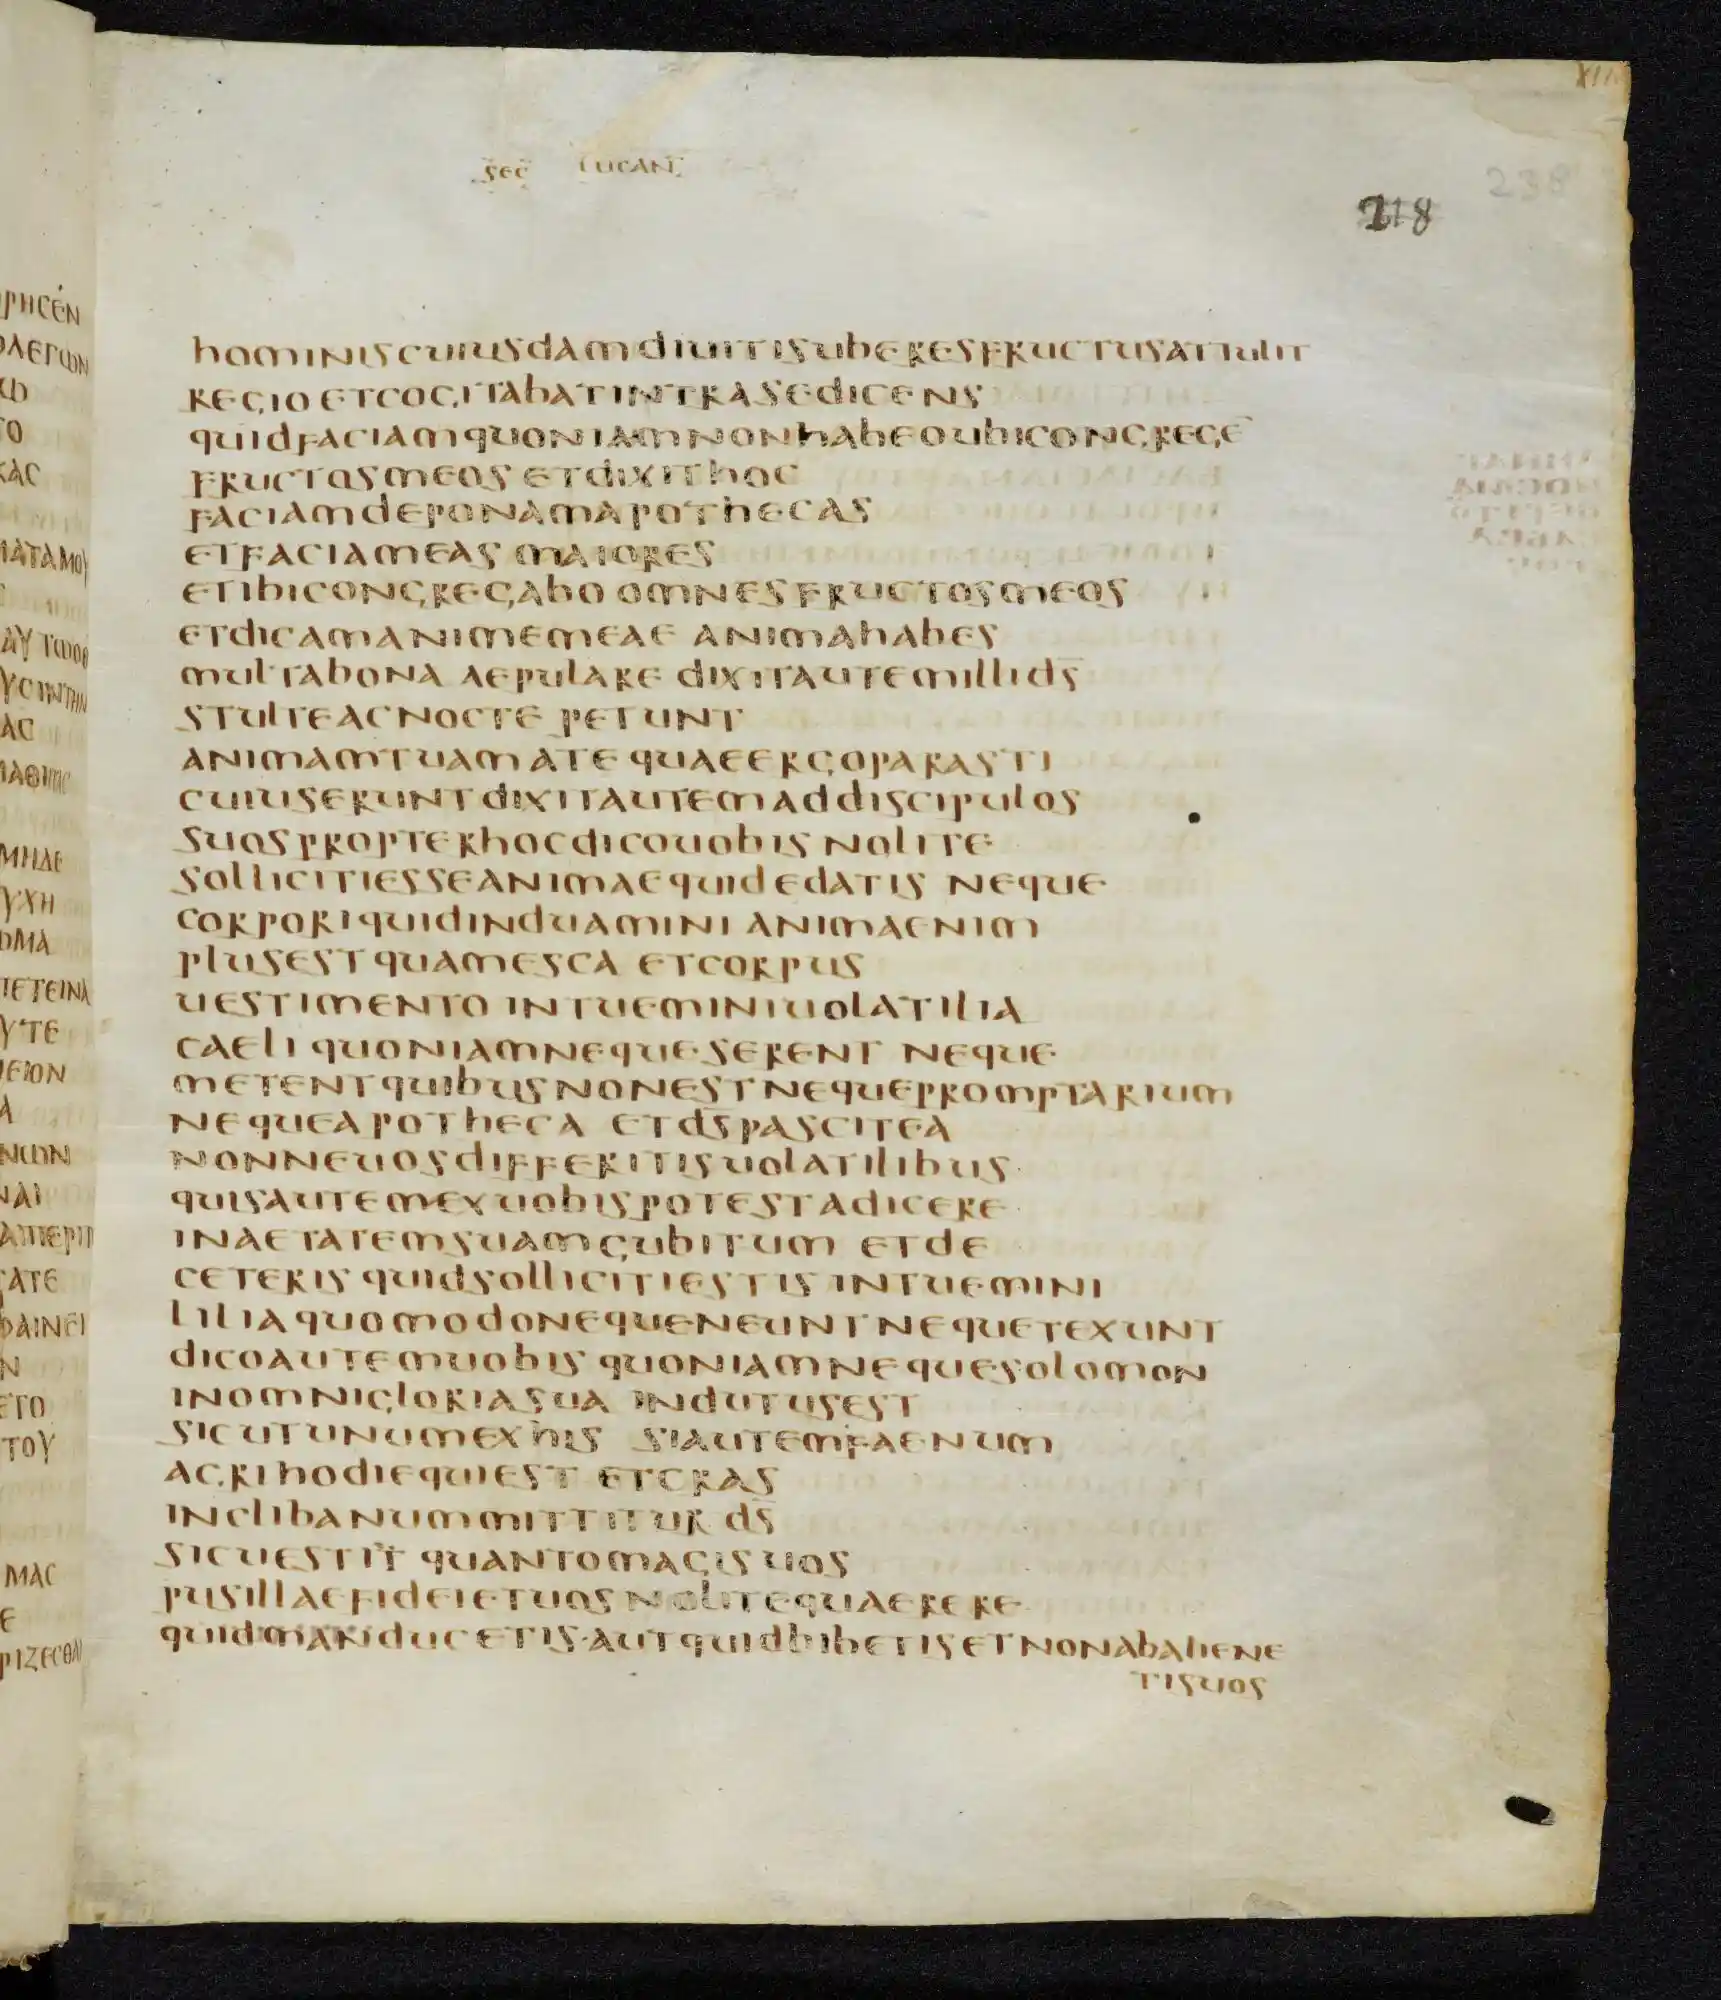 XIII
sec lucan
238
218
hominis cuiusdam diuitis uberes fructus attulit
regio et cogitabat intra se dicens
quid faciam quoniam non habeo ubi congregē
fructos meos et dixit hoc
faciam deponam apothecas
et facia meas maiores
et ibi congregabo omnes fructos meos
et dicam anime meae anima habes
multa bona aepulare dixit autem illi d̅s̅
stulte ac nocte petunt
animam tuam a te quae ergo parasti
cuius erunt dixit autem ad discipulos
suos propter hoc dico uobis nolite
solliciti esse animae quid edatis neque
corpori quid induamini anima enim
plus est quam esca et corpus
uestimento intuemini uolatilia
caeli quoniam neque serent neque
metent quibus non est neque promptarium
neque apotheca et d̅s̅ pascit ea
nonne uos differitis uolatilibus
quis autem ex uobis potest adicere
in aetatem suam cubitum et de
ceteris quid solliciti estis intuemini
lilia quomodo neque neunt neque texunt
dico autem uobis quoniam neque solomon
in omni gloria sua indutus est
sicut unum ex his si autem faenum
agri hodie qui est et cras
in clibanum mittitur d̅s̅
sic uestit quanto magis uos
pusillae fidei et uos nolite quaerere
quid manducetis·aut quid bibetis et non abaliene
tis uos
ΜΗΔΕ
ΥΧΗ
ΩΜΑ
ΠΕΤΕΙΝΑ
ΥΤΕ
ΝΩΝ
ΝΑΙ
ΑΠΕΡΙΠ
ΤΑΤΕ
Ν
ΕΤΟ
ΤΟΥ
ΜΑΣ
Ε
ΡΙΖΕΣΘΑΙ